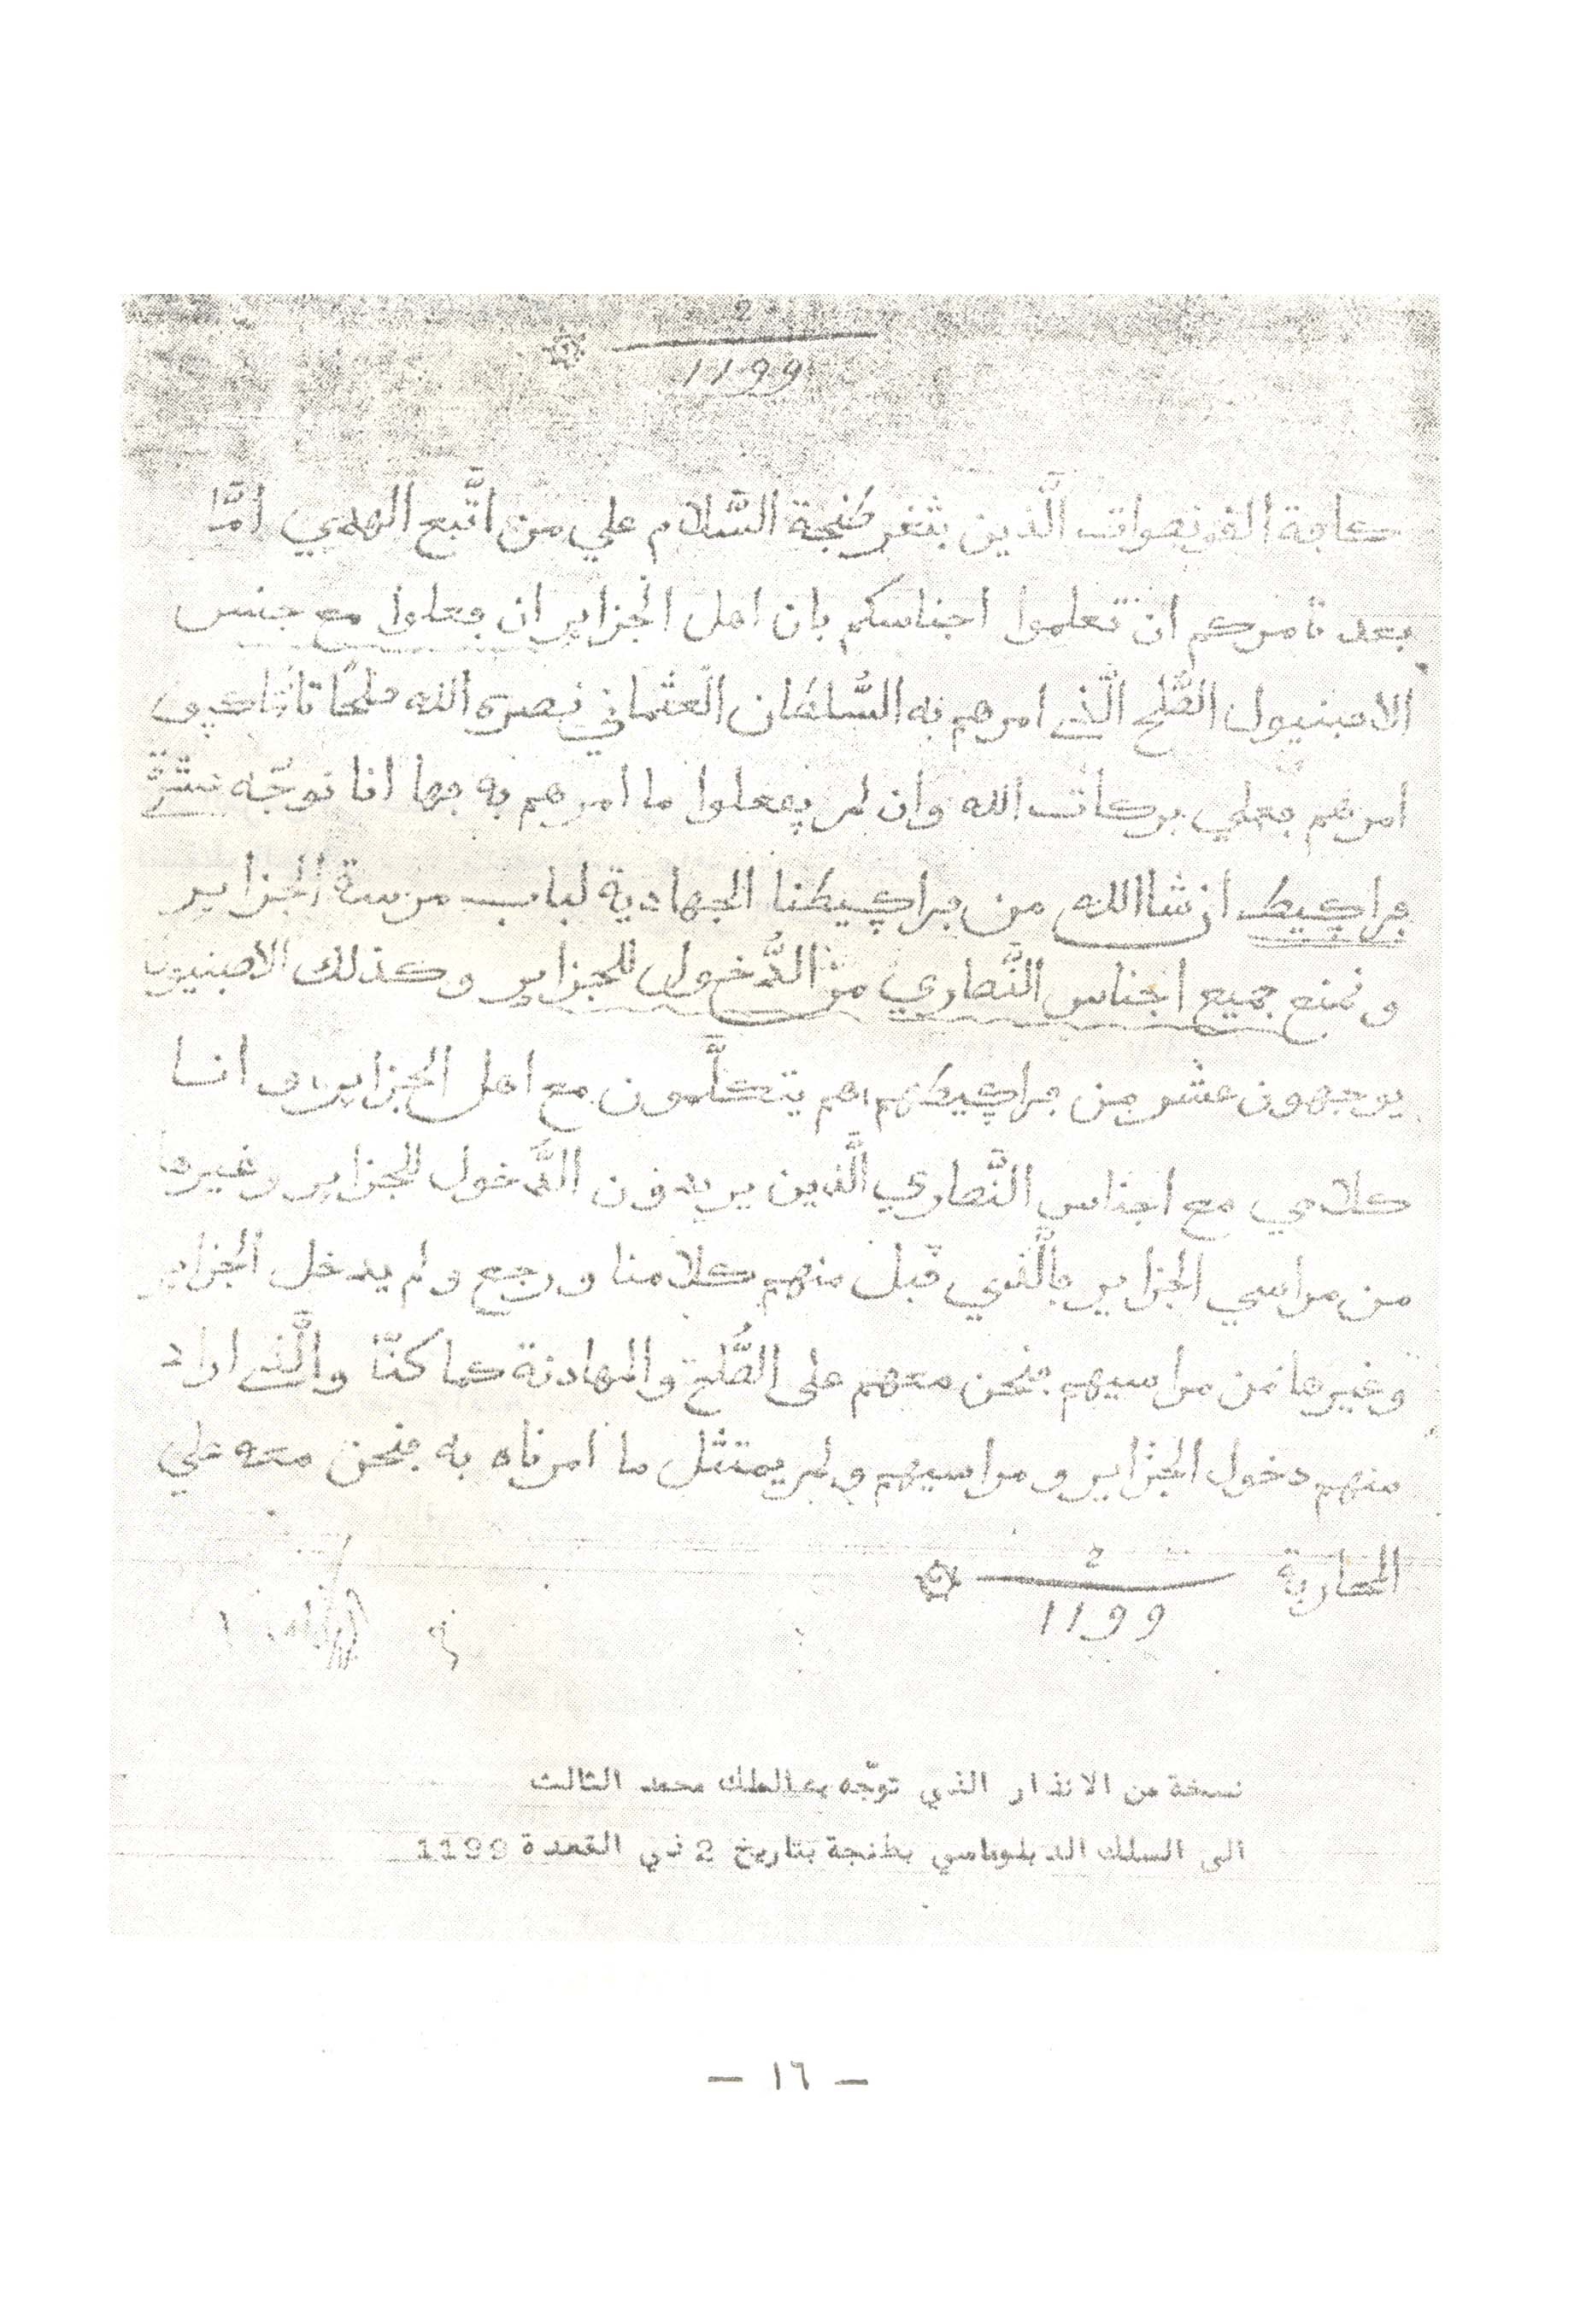 2
1199
كافة القونصوات الَّذين بثغر طنجة السَّلام علي من اتَّبع الهدي امَّا
بعد نامركم ان تعلموا اجناسكم بان اهل الجزاير ان فعلوا مع جنس
الاصبنيول الصُّلح الَّذي امرهم به السُّلطان العثماني نصره الله صلحًا
امرهم فعلي بركات الله وان لم يفعلوا ما امرهم به فها انا نوجّه ستّة
فراكيط ان شاالله من فراكيطنا الجهادية لباب مرسة الجزاير
ونمنع جميع اجناس النَّصاري من الدُّخول للجزاير وكذلك الاصبنيول
يوجهون عشر من فراكيطهم هم يتكلَّمون مع اهل الجزاير وانا
كلامي مع اجناس النَّصاري الَّذين يريدون الدُّخول للجزاير وغيرها
من مراسي الجزاير فالَّذي قبل منهم كلامنا ورجع ولم يدخل الجزاير
وغيرها من مراسيهم فنحن معهم على الصُّلح والمهادنة كما كنّا والَّذي اراد
منهم دخول الجزاير ومراسيهم ولم يمتثل ما امرناه به فنحن معه علي
المحاربة
2
1199
نسخة من الانذار الذي توجّه به الملك محمد الثالث
الى السلك الدبلوماسي بطنجة بتاريخ 2 ذي القعدة 1199
— ١٦ —